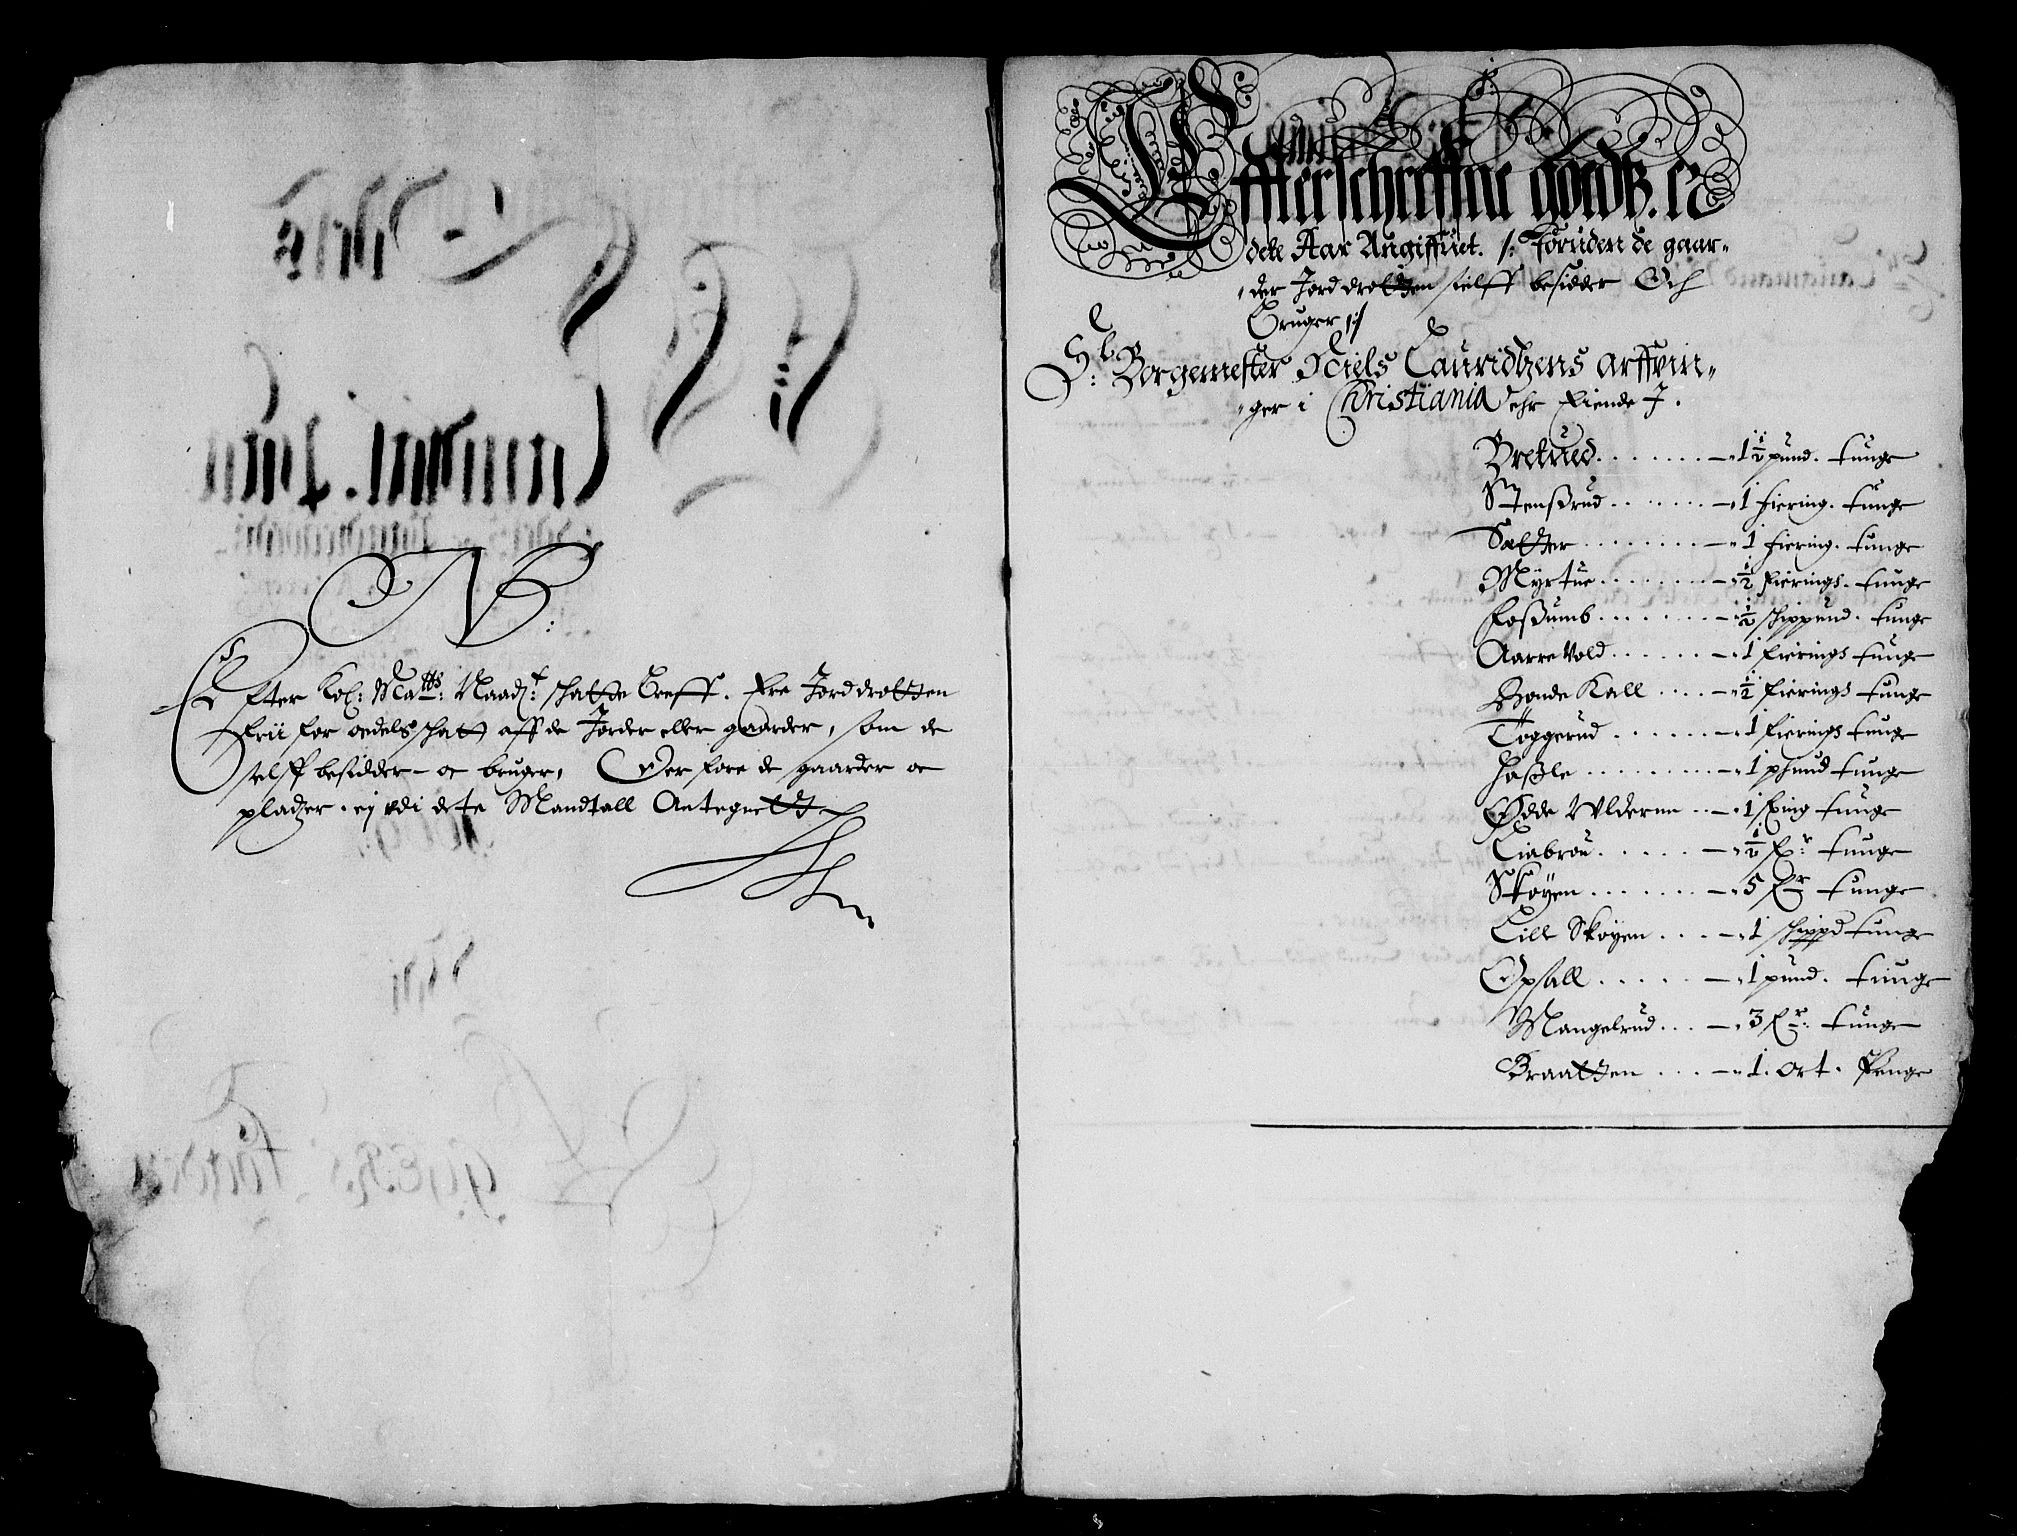 NB:
Efter Kol: Ma:tts Naad: schatte breff. Ere Jorddrotten
frii for odelsschatt aff de Jorder eller gaarder, som de
selff besidder oc bruger, Der fore de gaarder oc
pladzer ej udi dete Mandtall Antegnett
Effterschreffne goedtz. er
dete Aar Angiffuet. /: Foruden de gaar-
der Jorddrotten sielff besidder Och
Bruger :/
Sl: Borgemester Niels Lauridtzens arffvin-
ger i Christiania ehr Eiende J.
Bretued . . . . . . . — 1½ pund. tunge
Stensrud . . . . . . — 1 fiering. tunge
Sætter . . . . . . . . — 1 fiering. tunge
Myrtue . . . . . . . — ½ fierings. tunge
Fossumb . . . . . . — ½ schippund. tunge
Aarre Vold . . . . . — 1 fierings tunge
Bonde Kall . . . . — ½ fierings tunge
Tøggerud . . . . . . — 1 fierings tunge
Hassle . . . . . . . . — 1 phund tunge
Ødde Wlderne . . — 1 fring tunge
Liabrou . . . . . — ½ fr: tunge
Skøyen . . . . . . . — 5 fr tunge
Lille Skøyen . . . — 1 schippd tunge
Opsall . . . . . — 1 pund. tunge
Mangelrud . . . — 3 fr: tunge
Braatten . . . — 1. ort. Penge